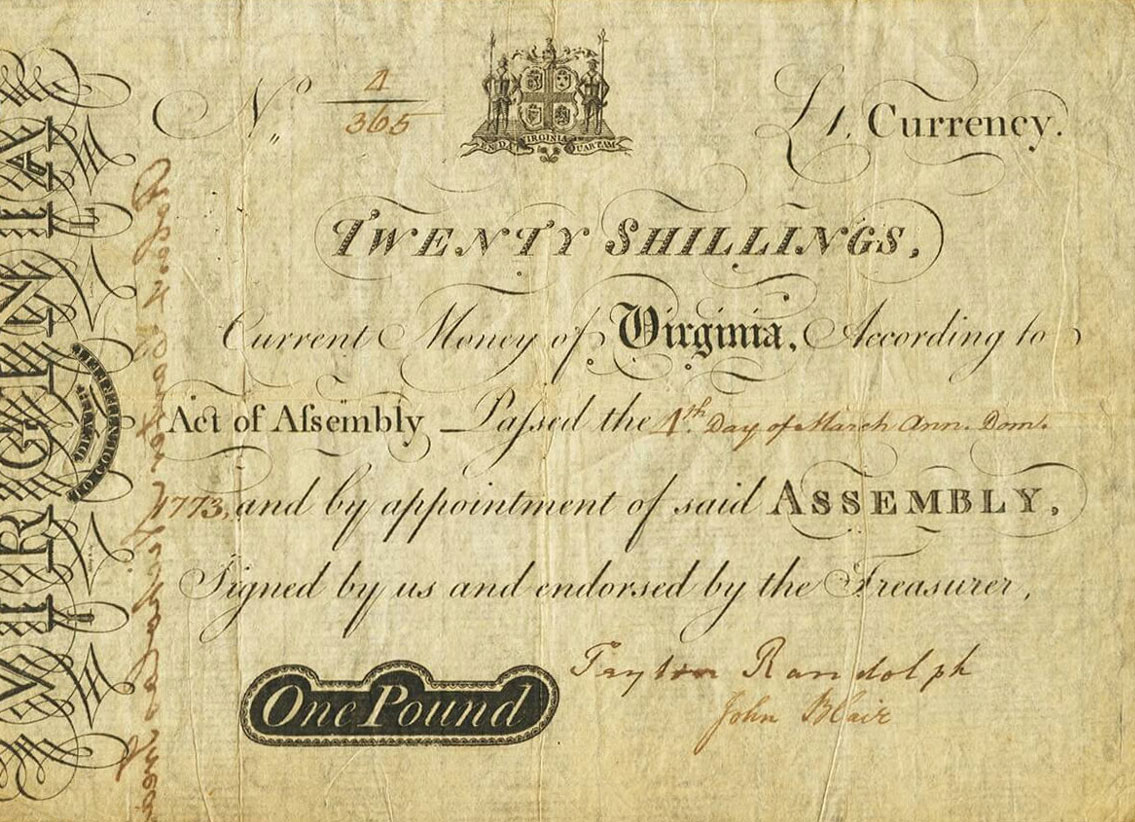 No 4
365
EN DAT VIRGINIA QUARTAM
£1, Currency.
TWENTY SHILLINGS,
Current Money of Virginia, According to
Act of Aſsembly Paſsed the 4th Day of March Ann. Dom.
1773, and by appointment of said ASSEMBLY,
Signed by us and endorsed by the Treasurer,
Peyton Randolph
John Blair
One Pound
VIRGINIA
TO COUNTERFEIT